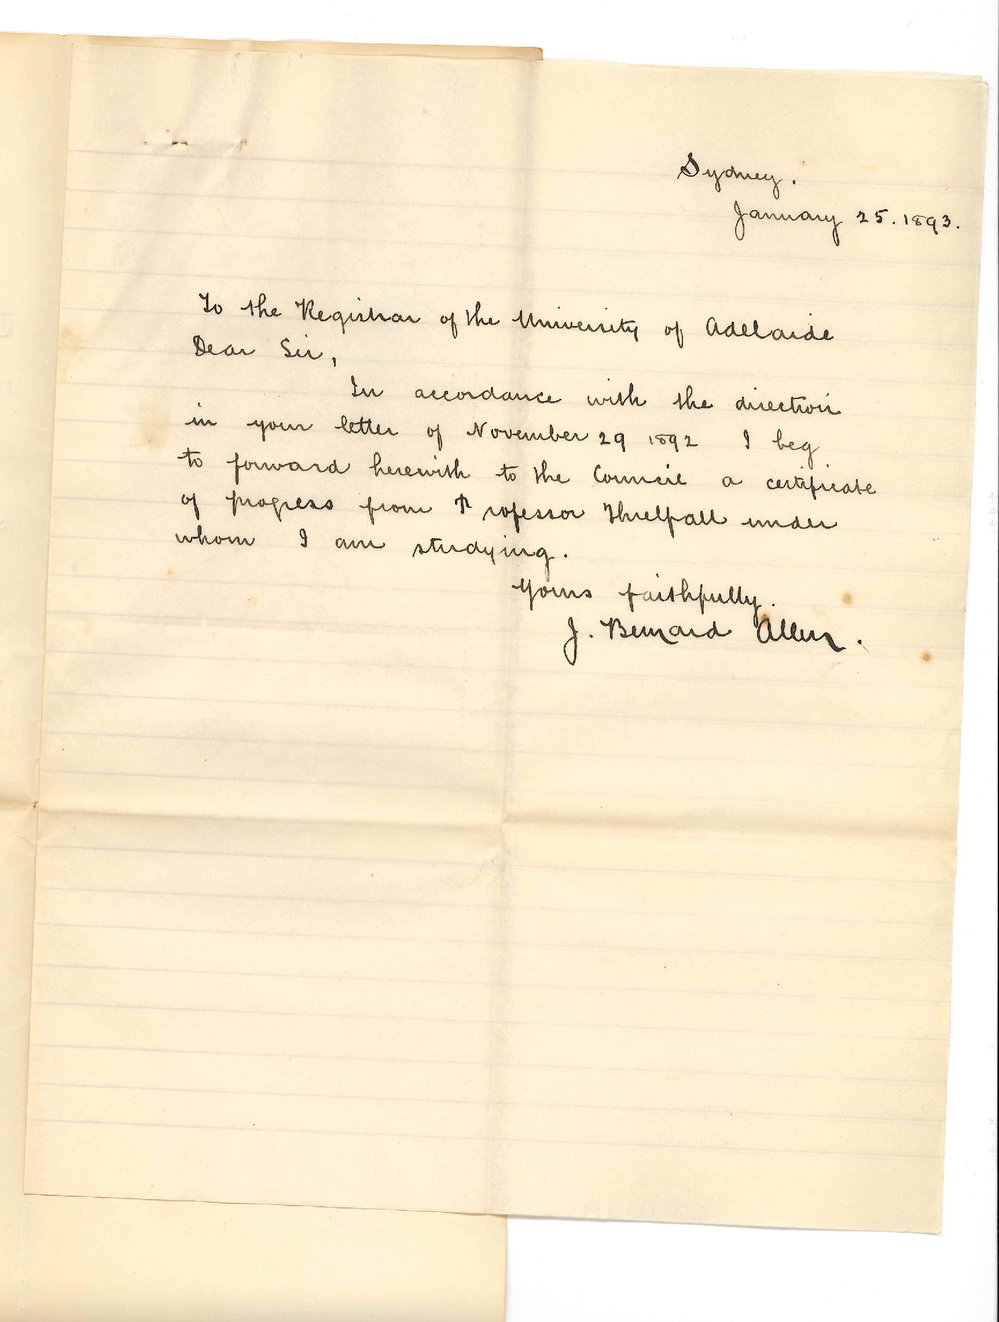 Sydney.
January 25. 1893.
To the Registrar of the University of Adelaide
Dear Sir,
In accordance with the direction
in your letter of November 29 1892 I beg
to forward herewith to the Council a certificate
of progress from Professor Threlfall under
whom I am studying.
Yours faithfully.
J. Bernard Allen.